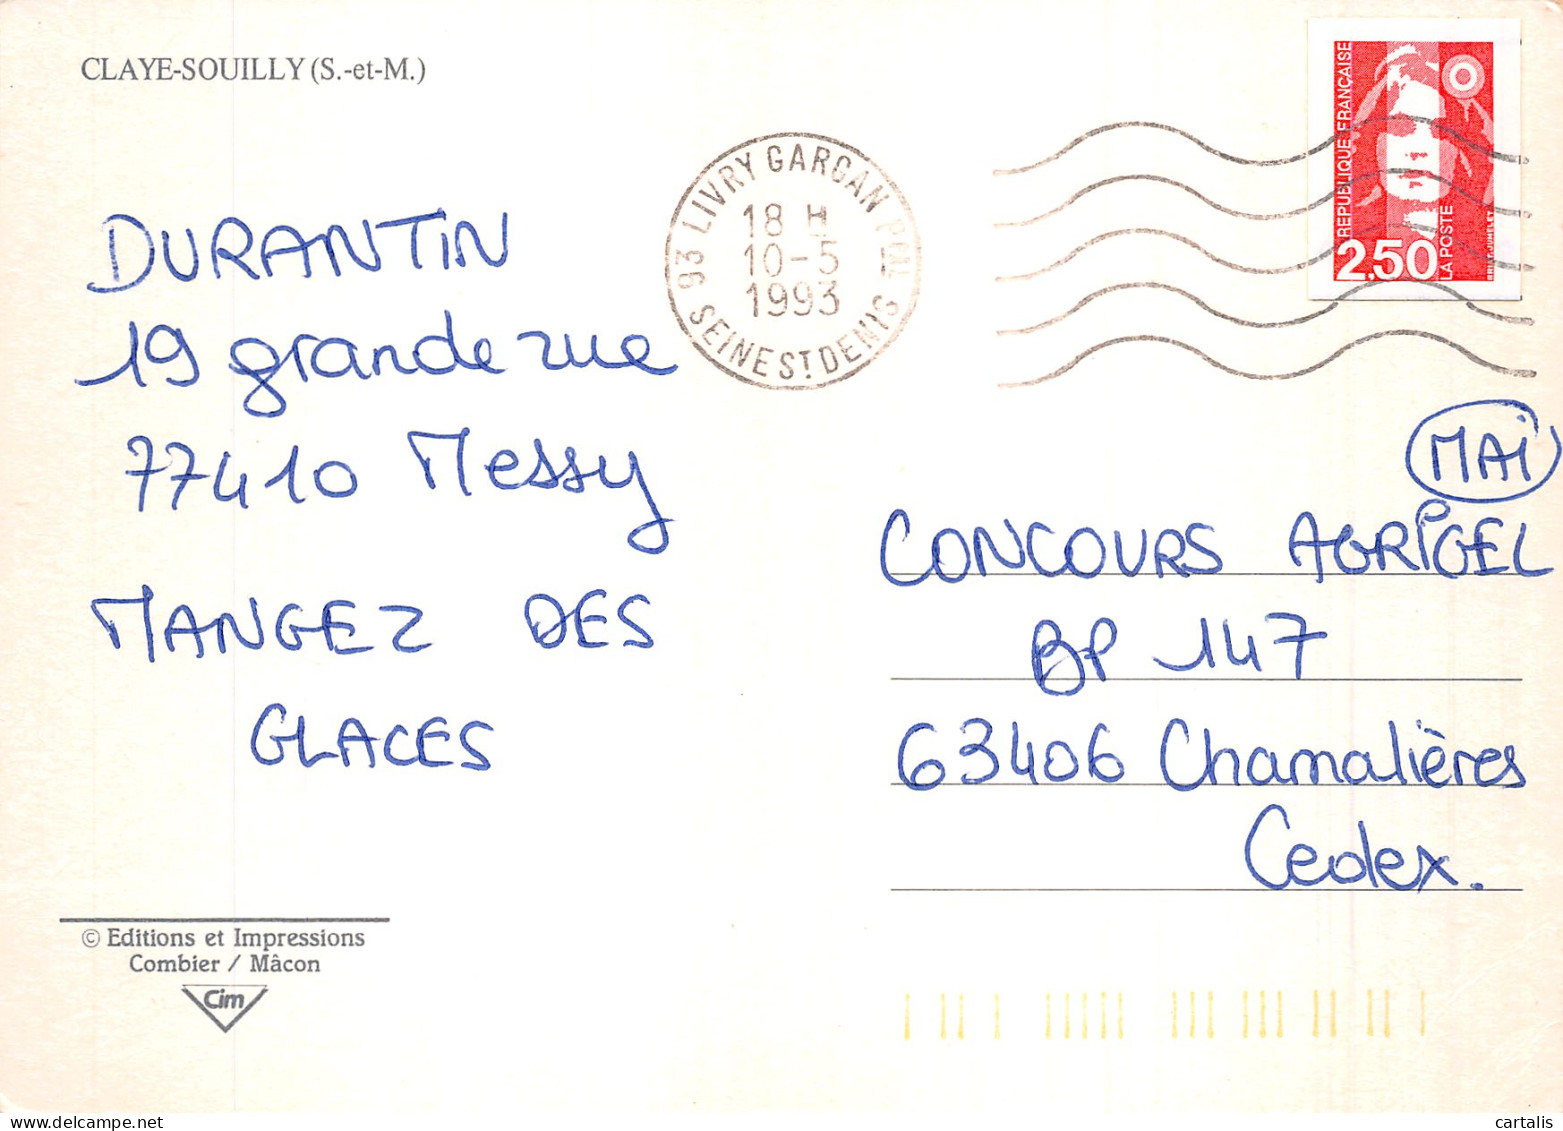 CLAYE-SOUILLY (S.-et-M.)
93 LIVRY GARGAN PAL
SEINE ST DENIS
18 H
10-5
1993
REPUBLIQUE FRANÇAISE
2.50
LA POSTE
DURANTIN
19 grande rue
77410 Messy
MANGEZ DES
GLACES
MAI
CONCOURS AGRIGEL
BP 147
63406 Chamalières
Cedex.
© Editions et Impressions
Combier / Mâcon
Cim
cartalis